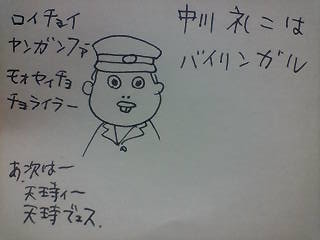 中川 礼二は
バイリンガル
ロイチョイ
ヤンガンファ
モォセイチョ
チョライラー
あ、次はー
天王寺ィー
天王寺デェス.